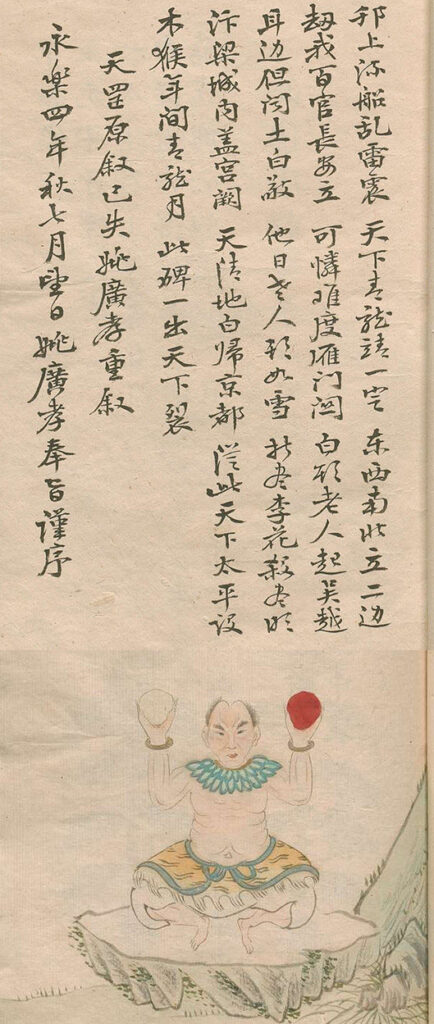 上流船乱雷震 天下青龍一空 东西南北立二边
劫哉百官長安立 可憐难度雁门関 白頭老人起吴越
耳边但闻土白敲 他日老人頭如雪 尽李花殺尽明
汴梁城内盖宫阙 天清地白歸京都 從此天下太平設
木猴年间青龍月 此碑一出天下裂
天罡原叙已失姚廣孝重叙
永樂四年秋七月望日姚廣孝奉旨謹序